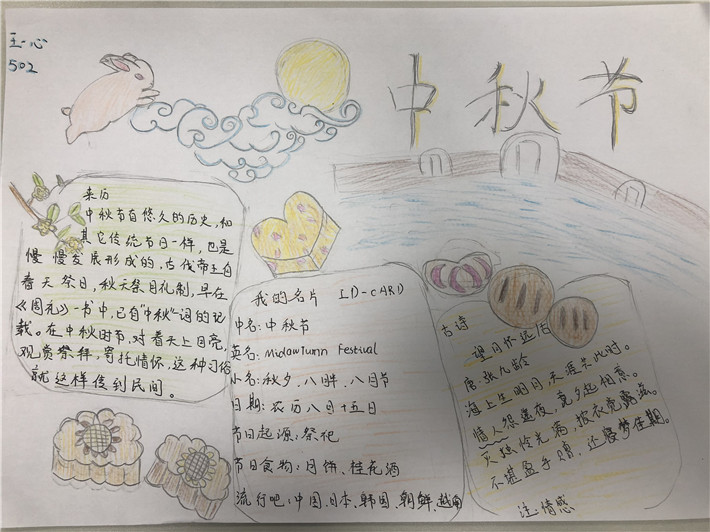 王一心
502
中秋节
来历
中秋节有悠久的历史,和
其它传统节日一样,也是
慢慢发展形成的,古代帝王有
春天祭日,秋天祭月礼制,早在
《周礼》一书中,已有"中秋"一词的记
载。在中秋时节,对着天上月亮,
观赏祭拜,寄托情怀,这种习俗
就这样传到民间。
我的名片 ID-CARD
中名:中秋节
英名:Midawtumn Festival
小名:秋夕、八月半、八月节
日期:农历八月十五日
节日起源:祭祀
节日食物:月饼、桂花酒
流行吧:中国、日本、韩国、朝鲜、越南
古诗
望月怀远
唐:张九龄
海上生明月,天涯共此时。
情人怨遥夜,竟夕起相思。
灭烛怜光满,披衣觉露滋。
不甚盈手赠,还寝梦佳期。
注:情感